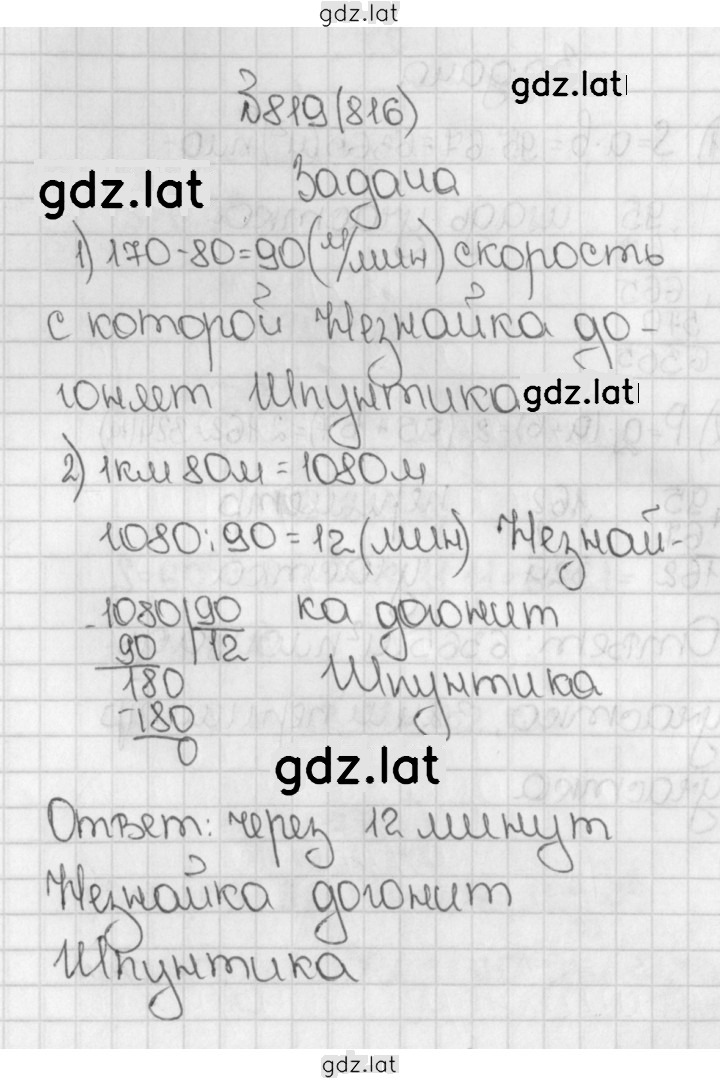 gdz.lat
gdz.lat
№819(816)
gdz.lat
Задача
1) 170-80=90(м/мин) скорость
с которой Незнайка до-
гоняет Шпунтика
gdz.lat
2) 1км 80м = 1080м
1080:90=12(мин) Незнай-
1080 90 ка догонит
90 12
180 Шпунтика
-180
0
gdz.lat
Ответ: через 12 минут
Незнайка догонит
Шпунтика
gdz.lat